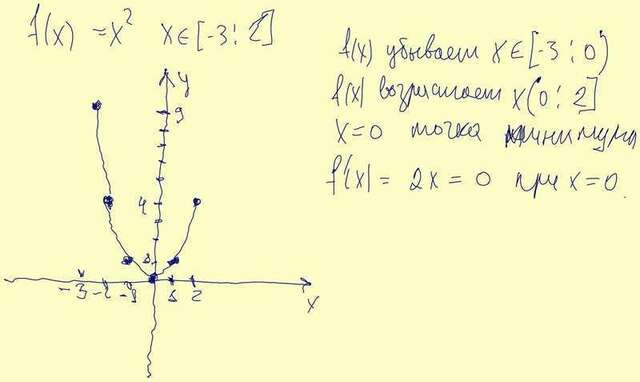 f(x) = x² x∈[-3; 2]
f(x) убывает x∈[-3; 0)
f(x) возрастает x(0; 2]
x=0 точка минимума
f'(x) = 2x = 0 при x=0.
y
9
4
1
-3 -2 -1 1 2
x